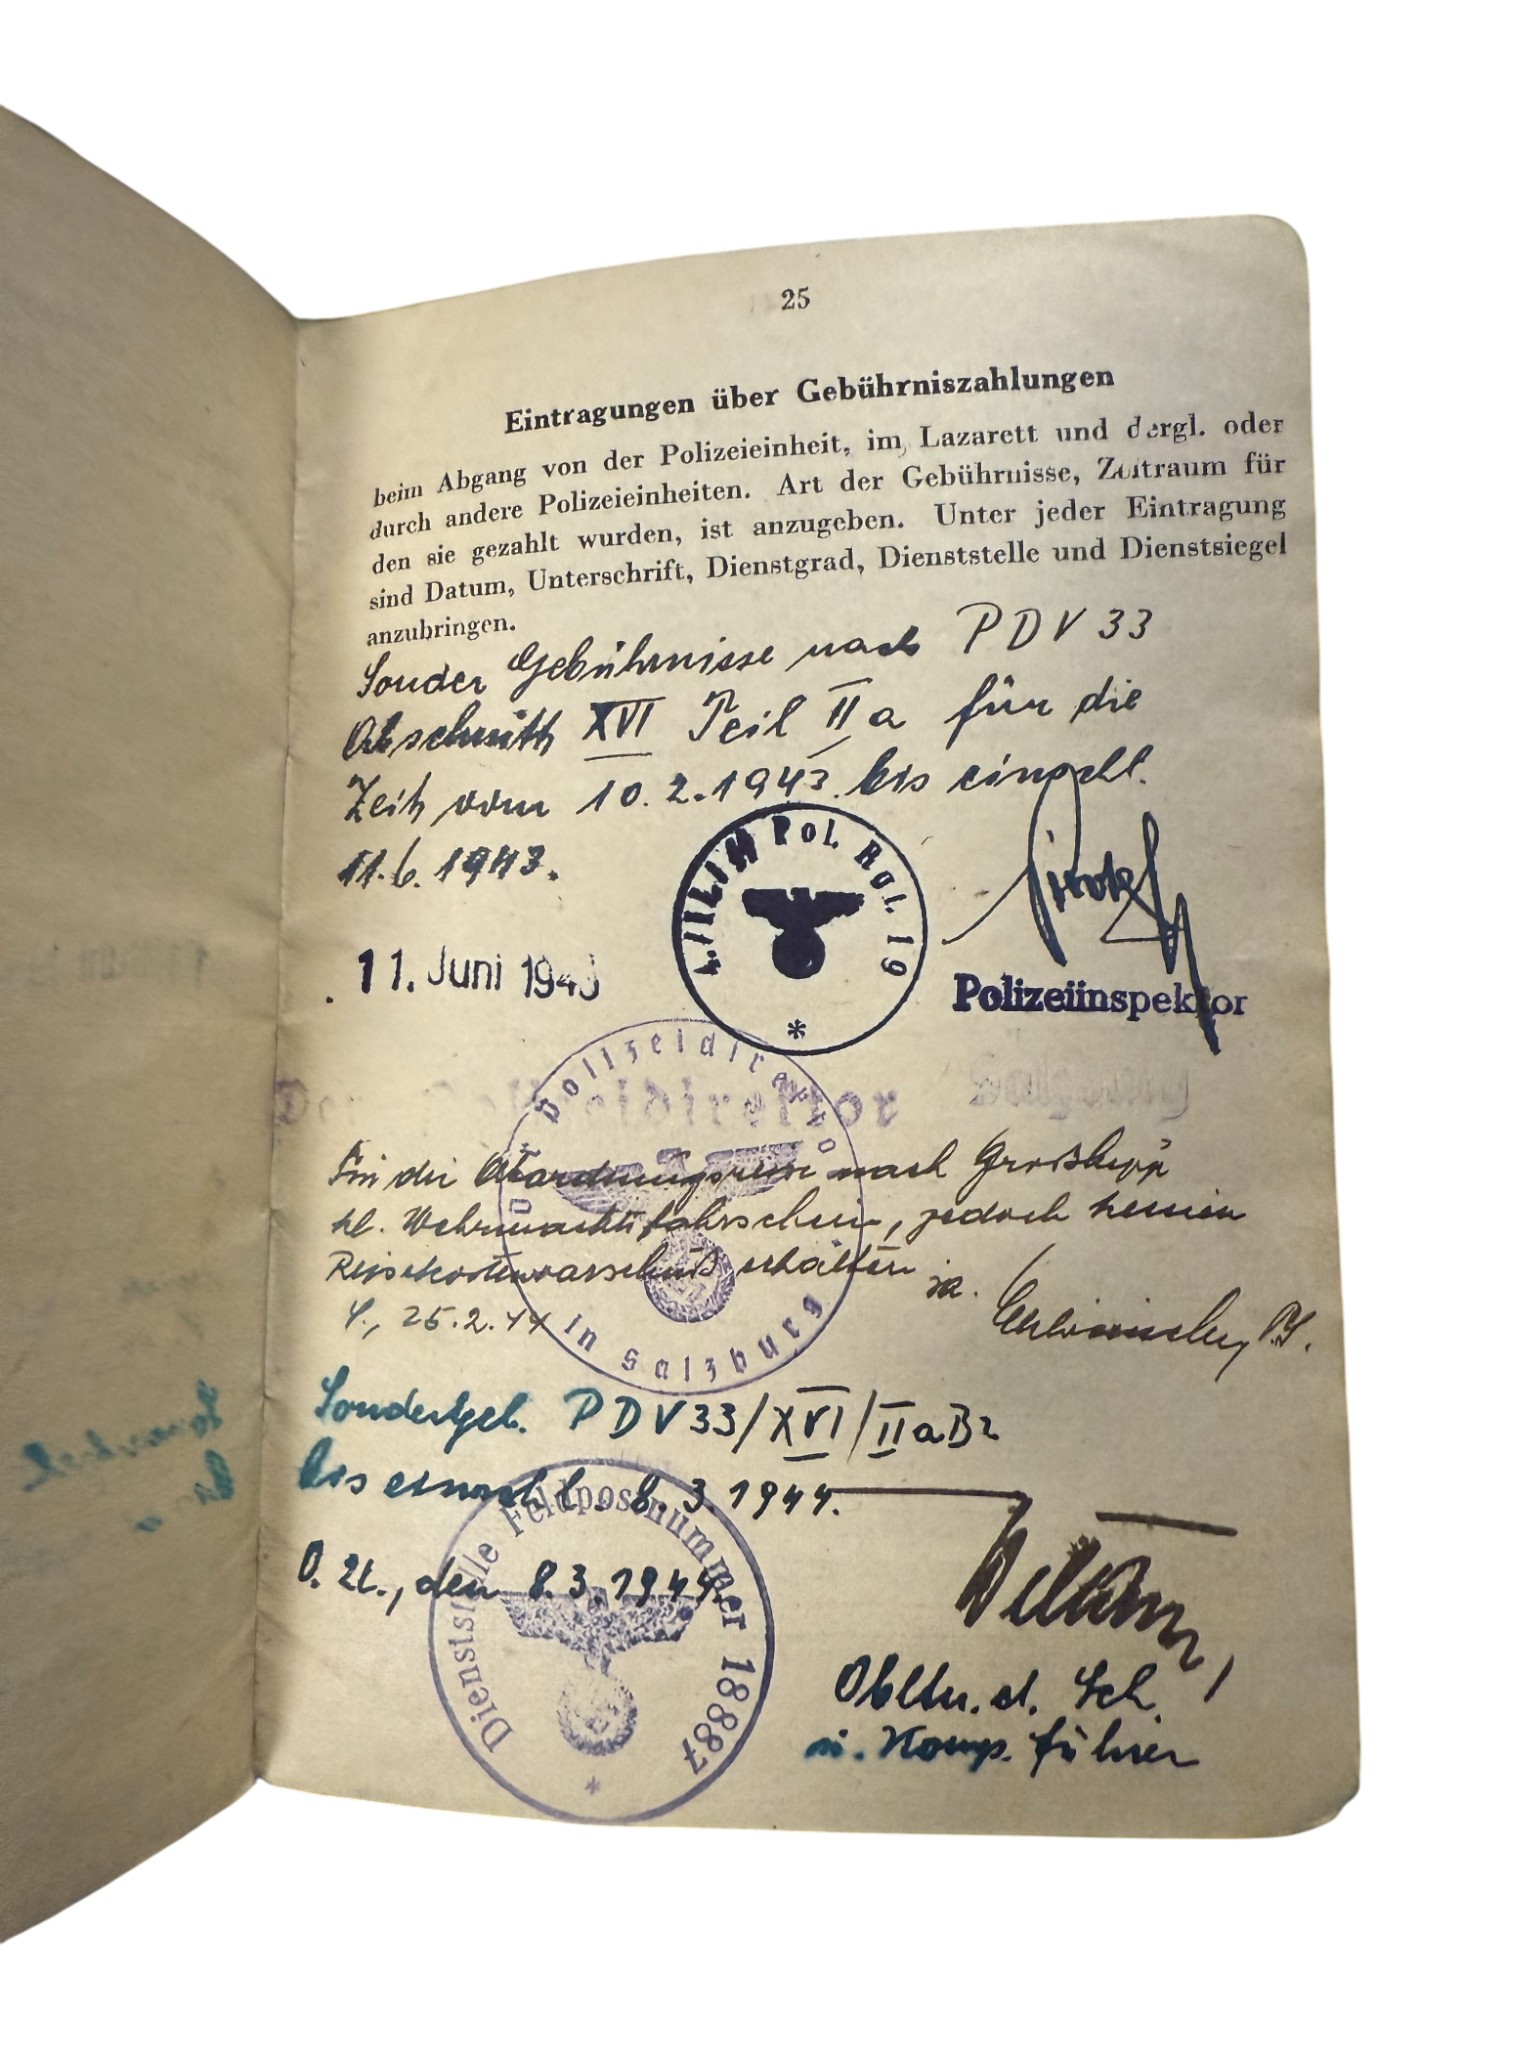 25
Eintragungen über Gebührniszahlungen
beim Abgang von der Polizeieinheit, im Lazarett und dergl. oder
durch andere Polizeieinheiten. Art der Gebührnisse, Zeitraum für
den sie gezahlt wurden, ist anzugeben. Unter jeder Eintragung
sind Datum, Unterschrift, Dienstgrad, Dienststelle und Dienstsiegel
anzubringen.
Sonder Gebührnisse nach PDV 33
Abschnitt XVI Teil II a für die
Zeit vom 10.2.1943 bis einschl.
11.6.1943.
Pol. Rgt. 19
*
11. Juni 1943
Polizeiinspektor
Der Polizeidirektor Salzburg
Der Polizeidirektor
in Salzburg
Für die Abordnungsreise nach
kl. Wehrmachtsfahrschein, jedoch keinen
Reisekostenvorschuß erhalten
S., 25.2.44
Sondergeb. PDV 33/XVI/IIa
bis einschl. 8.3.1944.
O. U., den 8.3.1944.
Dienststelle Feldpostnummer 18887
*
Obltn. d. Sch.
u. Komp. führer